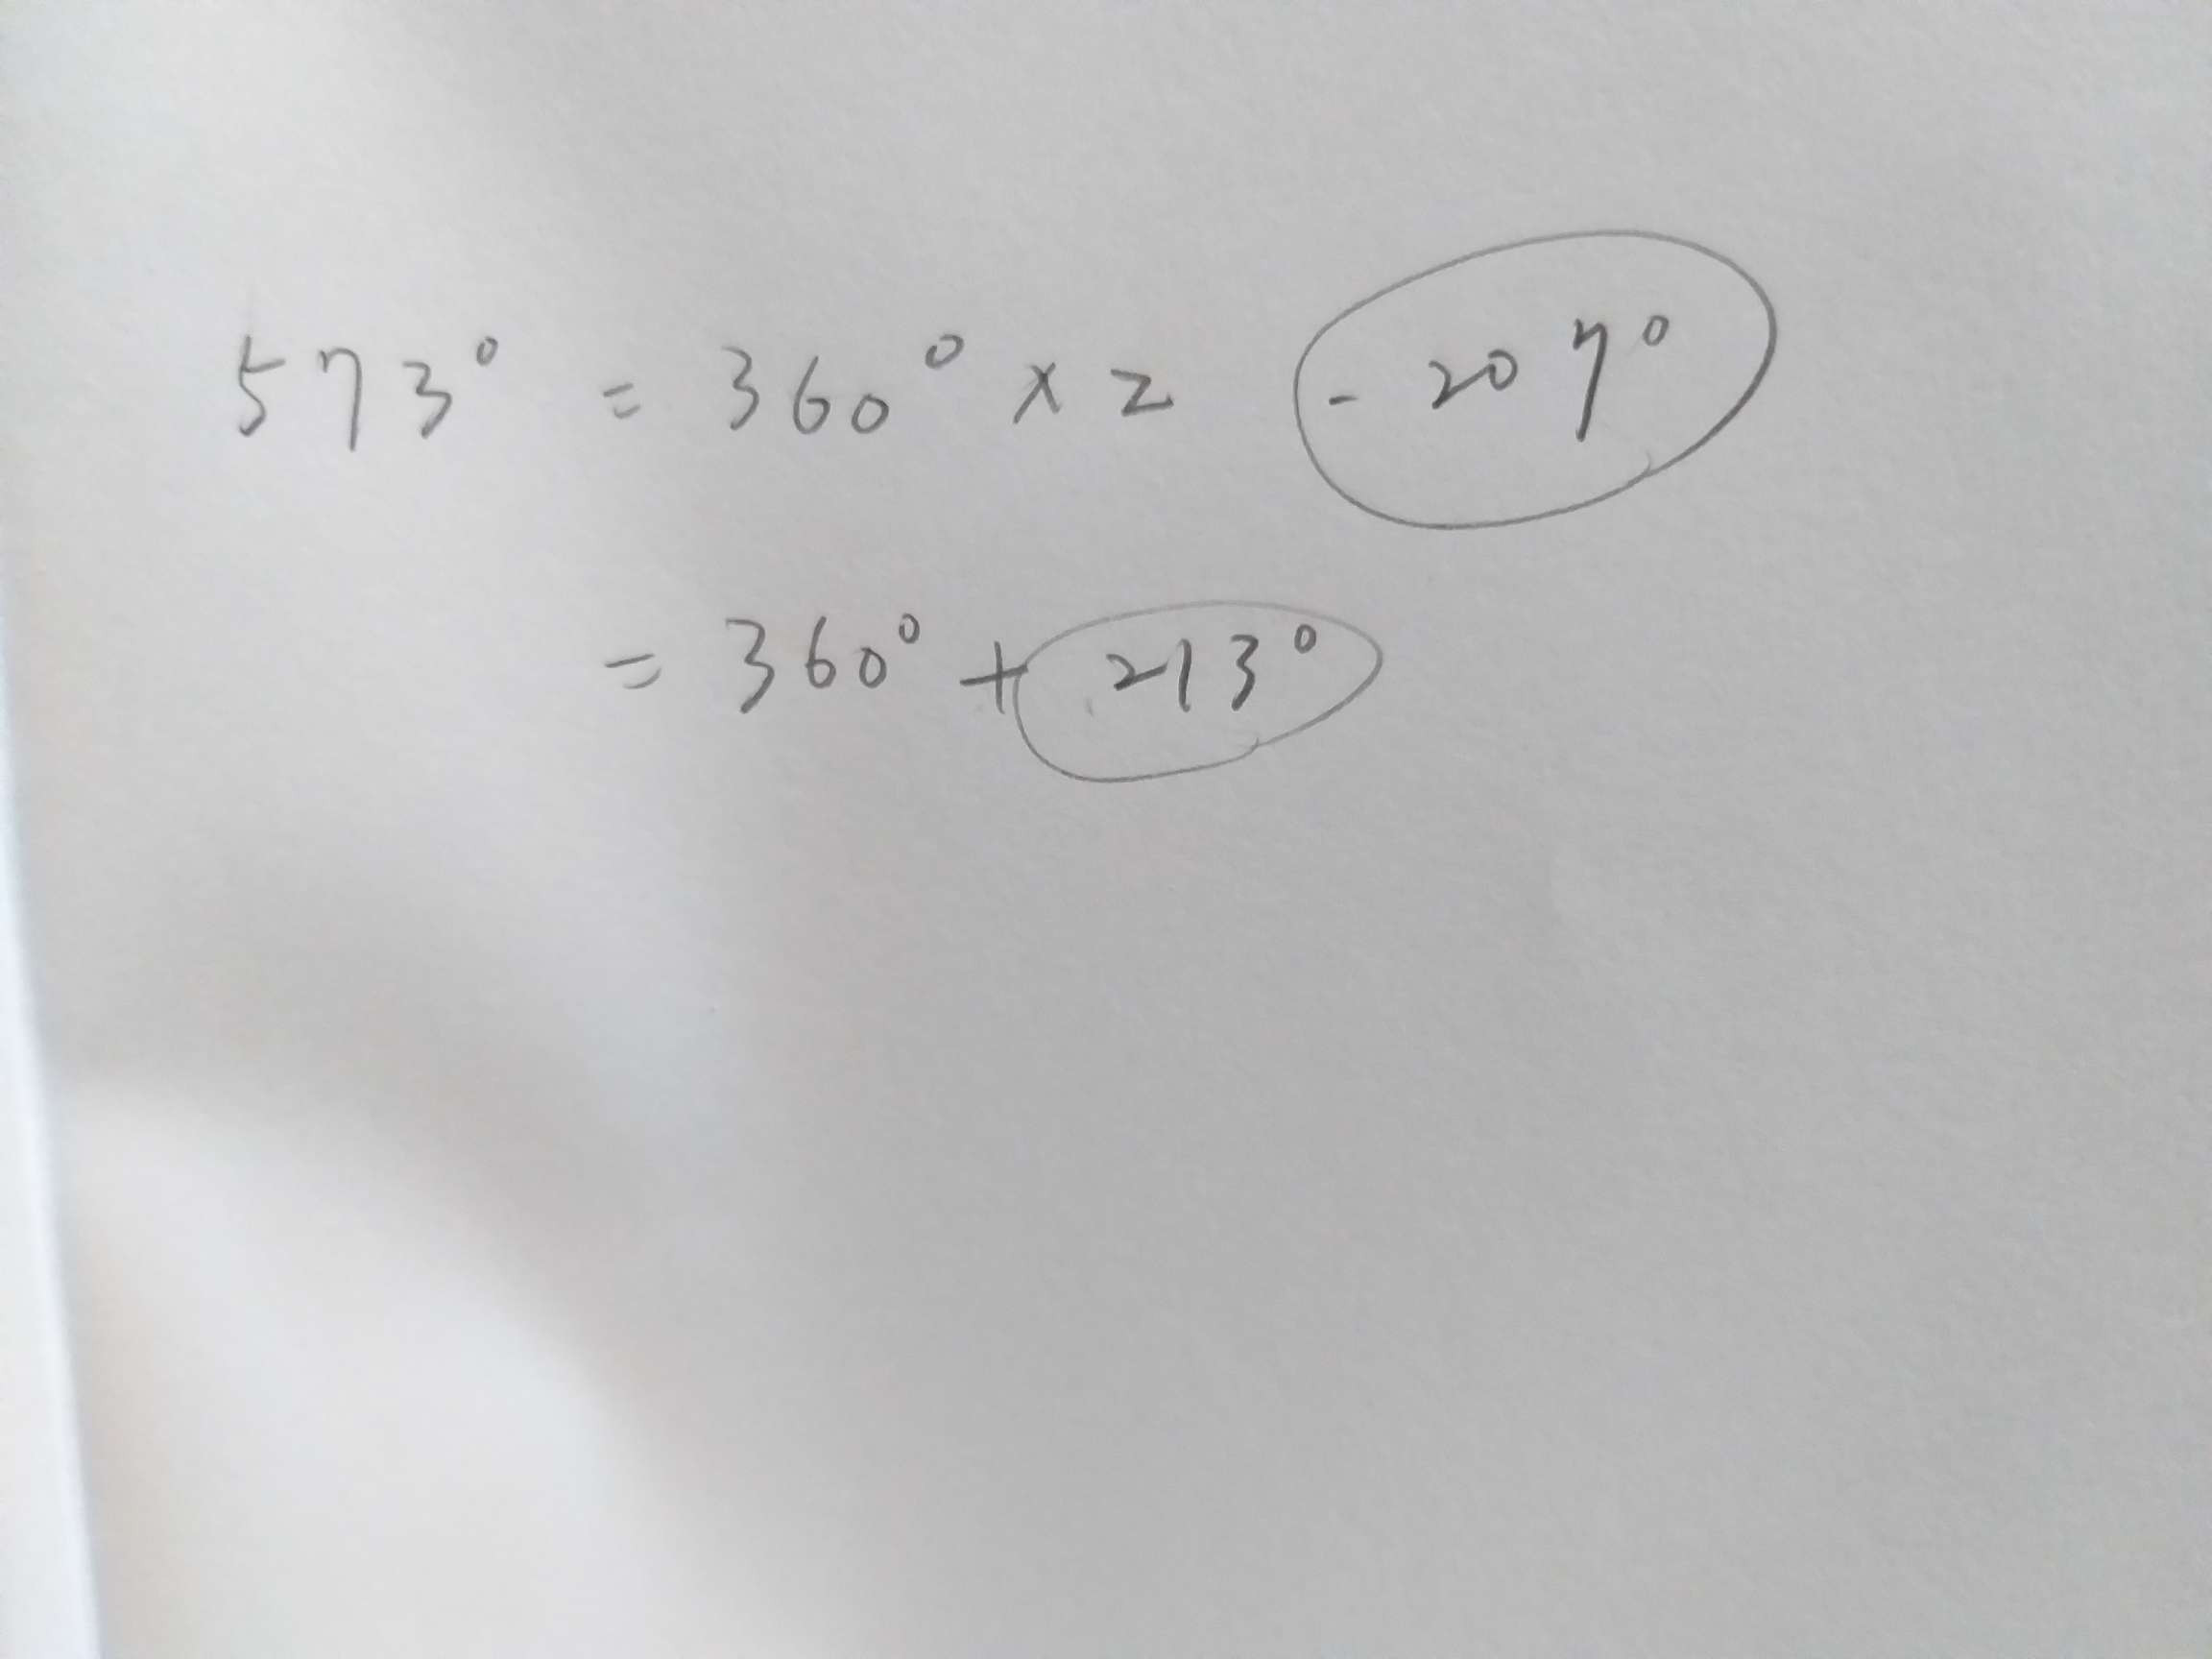 573° = 360° × 2 - 207°
= 360° + 213°